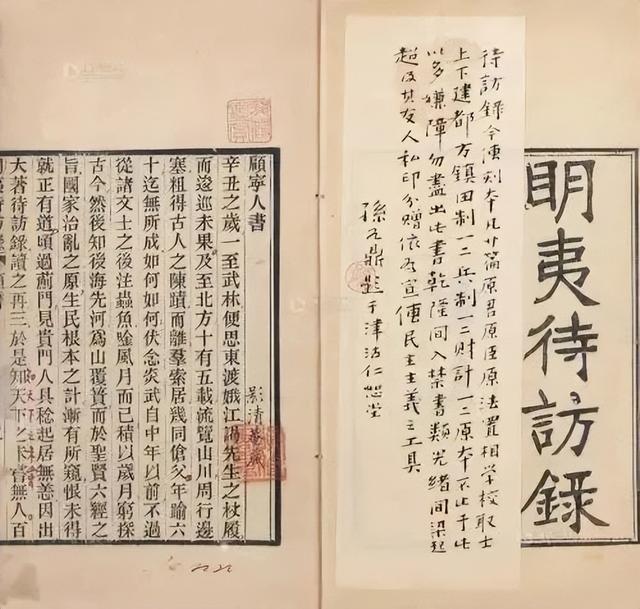 明夷待訪錄
待訪錄今傳刻本凡廿篇原君原臣原法置相學校取士
上下建都方鎮田制一二三兵制一二三財計一二三原本不止于此
以多嫌障勿盡出此書乾隆間入禁書類光緒間梁起
超及其友人私印分贈依為宣傳民主主義之工具
孫九鼎 于津沽仁恕堂
顧寧人書
辛丑之歲一至武林便思東渡娥江謁先生之杖履
而逡巡未果及至北方十有五載流覽山川周行邊
塞粗得古人之陳蹟而離羣索居幾同傖父年踰六
十迄無所成如何如何伏念炎武自中年以前不過
從諸文士之後注蟲魚唫風月而已積以歲月窮探
古今然後知後海先河爲山覆簣而於聖賢六經之
旨國家治亂之原生民根本之計漸有所窺恨未得
就正有道頃過薊門見貴門人具稔起居無恙因出
大著待訪錄讀之再三於是知天下之未嘗無人百